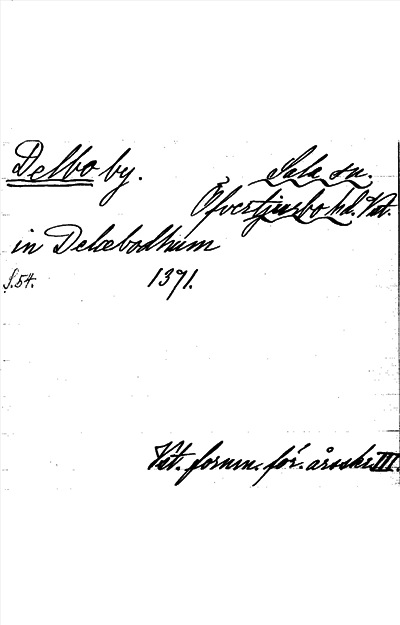 Delbo by.
Sala sn.
Öfvertjursbo hd. Vst.
in Delæbodhum
S. 54.
1371.
Vst. fornm. för. årsskr. III.